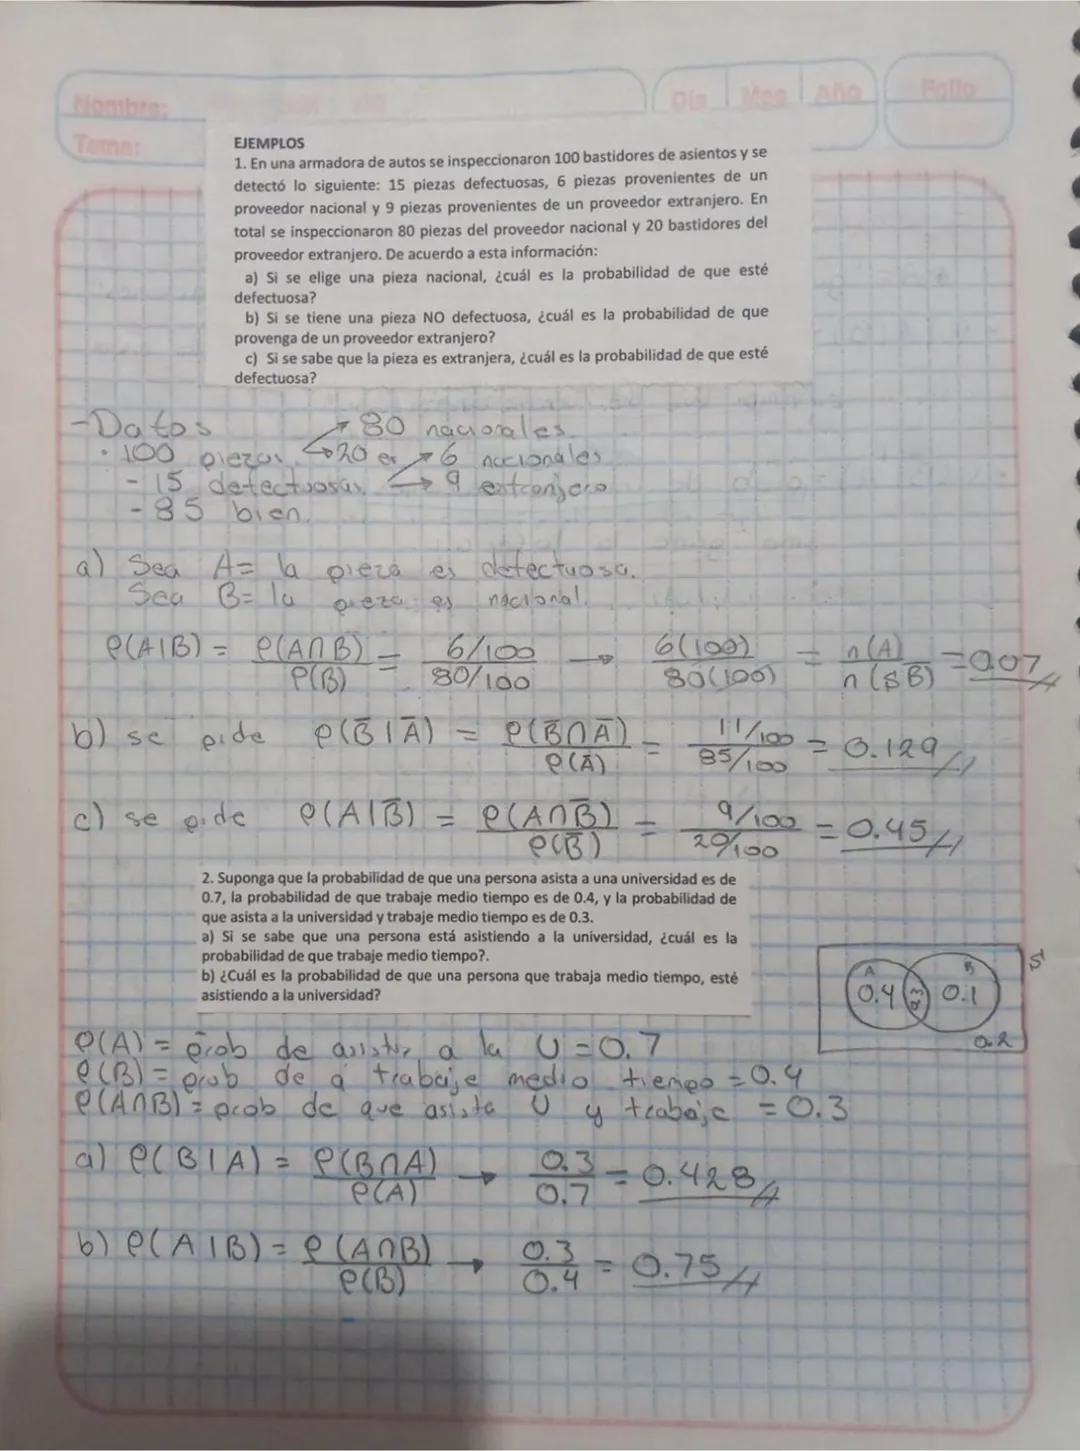 Nombre:
Tema:
Día Mes Año
Folio
EJEMPLOS
1. En una armadora de autos se inspeccionaron 100 bastidores de asientos y se
detectó lo siguiente: 15 piezas defectuosas, 6 piezas provenientes de un
proveedor nacional y 9 piezas provenientes de un proveedor extranjero. En
total se inspeccionaron 80 piezas del proveedor nacional y 20 bastidores del
proveedor extranjero. De acuerdo a esta información:
a) Si se elige una pieza nacional, ¿cuál es la probabilidad de que esté
defectuosa?
b) Si se tiene una pieza NO defectuosa, ¿cuál es la probabilidad de que
provenga de un proveedor extranjero?
c) Si se sabe que la pieza es extranjera, ¿cuál es la probabilidad de que esté
defectuosa?
-Datos → 80 nacionales.
· 100 piezas. → 20 ex → 6 nacionales
- 15 defectuosas. → 9 extranjero
- 85 bien.
a) Sea A= la pieza es defectuosa.
Sea B= la pieza es nacional.
P(A|B) = P(A∩B)/P(B) = 6/100 / 80/100 → 6(100)/80(100) = n(A)/n(SB) = 0.07
b) se pide P(B̄|Ā) = P(B̄∩Ā)/P(Ā) = 11/100 / 85/100 = 0.129
c) se pide P(A|B̄) = P(A∩B̄)/P(B̄) = 9/100 / 20/100 = 0.45
2. Suponga que la probabilidad de que una persona asista a una universidad es de
0.7, la probabilidad de que trabaje medio tiempo es de 0.4, y la probabilidad de
que asista a la universidad y trabaje medio tiempo es de 0.3.
a) Si se sabe que una persona está asistiendo a la universidad, ¿cuál es la
probabilidad de que trabaje medio tiempo?.
b) ¿Cuál es la probabilidad de que una persona que trabaja medio tiempo, esté
asistiendo a la universidad?
S
A B
0.4 0.3 0.1
0.2
P(A) = prob de asistir a la U = 0.7
P(B) = prob de q trabaje medio tiempo = 0.4
P(A∩B) = prob de que asista U y trabaje = 0.3
a) P(B|A) = P(B∩A)/P(A) → 0.3/0.7 = 0.428
b) P(A|B) = P(A∩B)/P(B) → 0.3/0.4 = 0.75